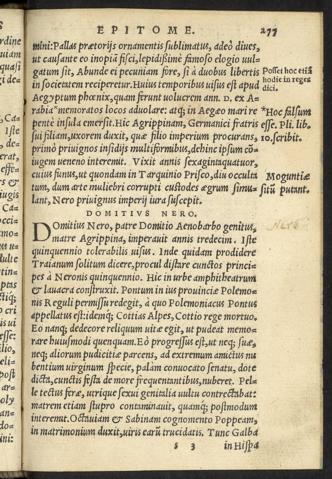 EPITOME. 277
mini: Pallas prætorijs ornamentis sublimatus, adeò diues,
ut causante eo inopiā fisci, lepidißime famoso elogio uul-
gatum sit, Abunde ei pecuniam fore, si à duobus libertis
in societatem reciperetur. Huius temporibus uisus est apud
Aegyptum phœnix, quam ferunt uolucrem ann. D. ex A-
rabia *memoratos locos aduolare: atq; in Aegæo mari re
pente insula emersit. Hic Agrippinam, Germanici fratris
sui filiam, uxorem duxit, quæ filio imperium procurans,
primò priuignos insidijs multiformibus, dehinc ipsum cō-
iugem ueneno interemit. Vixit annis sexagintaquatuor,
cuius funus, ut quondam in Tarquinio Prisco, diu occulta
tum, dum arte muliebri corrupti custodes ægrum simu-
lant, Nero priuignus imperij iura suscepit.
Posset hoc etiā
hodie in reges
dici.
*Hoc falsum
esse. Pli. lib.
10. scribit.
Moguntiæ
sitū putant.
DOMITIVS NERO.
Domitius Nero, patre Domitio Aenobarbo genitus,
matre Agrippina, imperauit annis tredecim. Iste
quinquennio tolerabilis uisus. Inde quidam prodidere
Traianum solitum dicere, procul distare cunctos princi-
pes à Neronis quinquennio. Hic in urbe amphitheatrum
& lauacra construxit. Pontum in ius prouinciæ Polemo-
nis Reguli permissu redegit, à quo Polemoniacus Pontus
appellatus est: idemq; Cottias Alpes, Cottio rege mortuo.
Eo nanq; dedecore reliquum uitæ egit, ut pudeat memo-
rare huiusmodi quenquam. Eò progressus est, ut neq; suæ,
neq; aliorum pudicitiæ parcens, ad extremum amictus nu
bentium uirginum specie, palàm conuocato senatu, dote
dicta, cunctis festa de more frequentantibus, nuberet. Pel-
le tectus feræ, utriq́ue sexui genitalia uultu contrectabat:
matrem etiam stupro contaminauit, quamq́; postmodum
interemit. Octauiam & Sabinam cognomento Poppeam,
in matrimonium duxit, uiris earū trucidatis. Tunc Galba
s 3 in Hispa
Nero